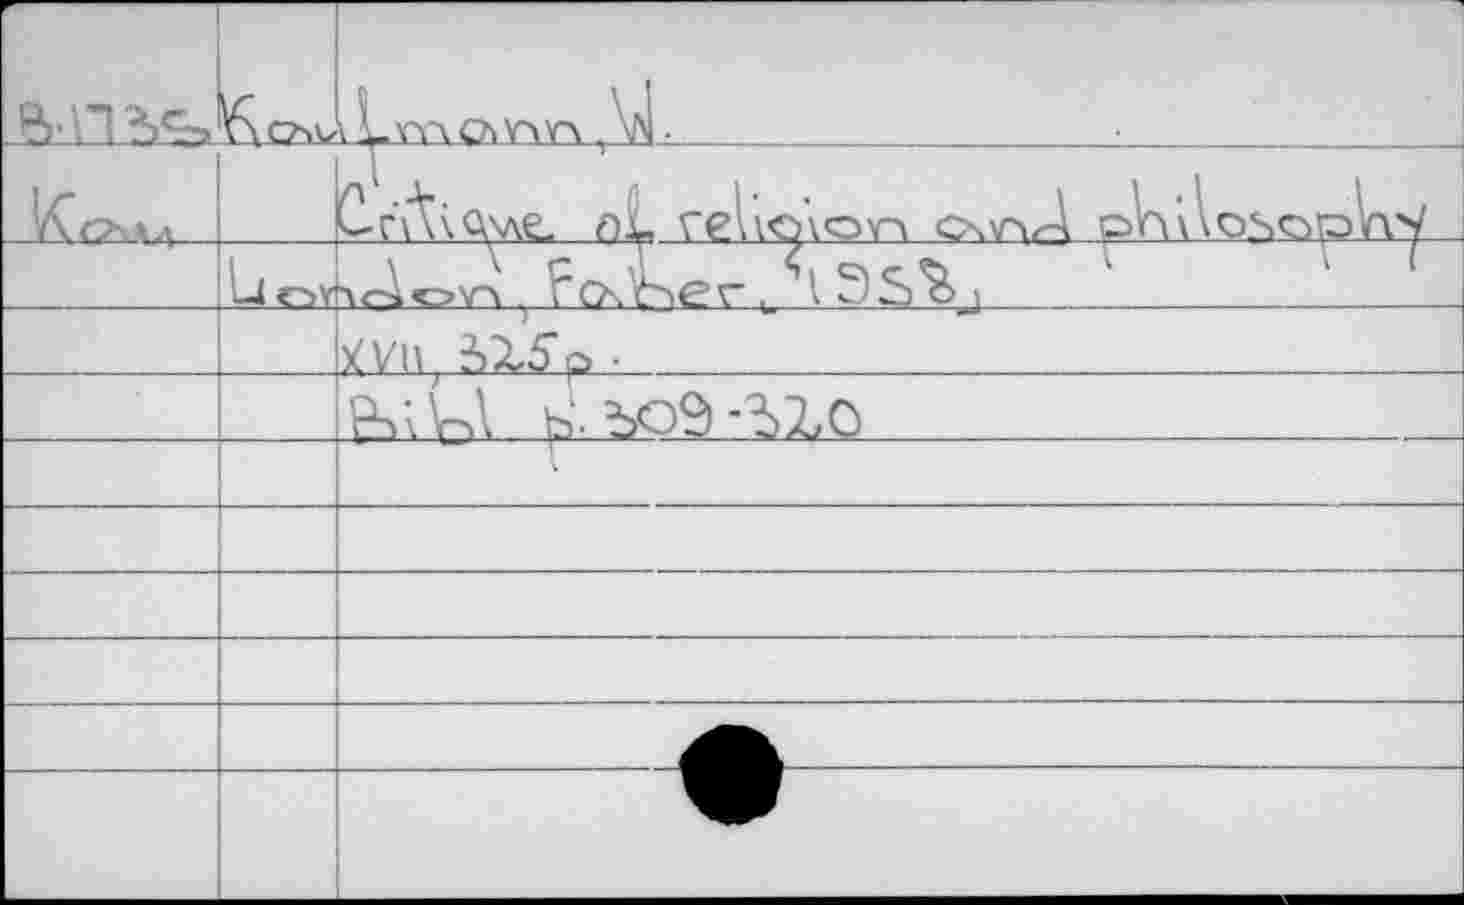 B.1735 Kaufmann, W.
Kau Critique of religion and philosophy
London, Faber, 1958,
XVII, 325 p.
Bibl p. 309-320